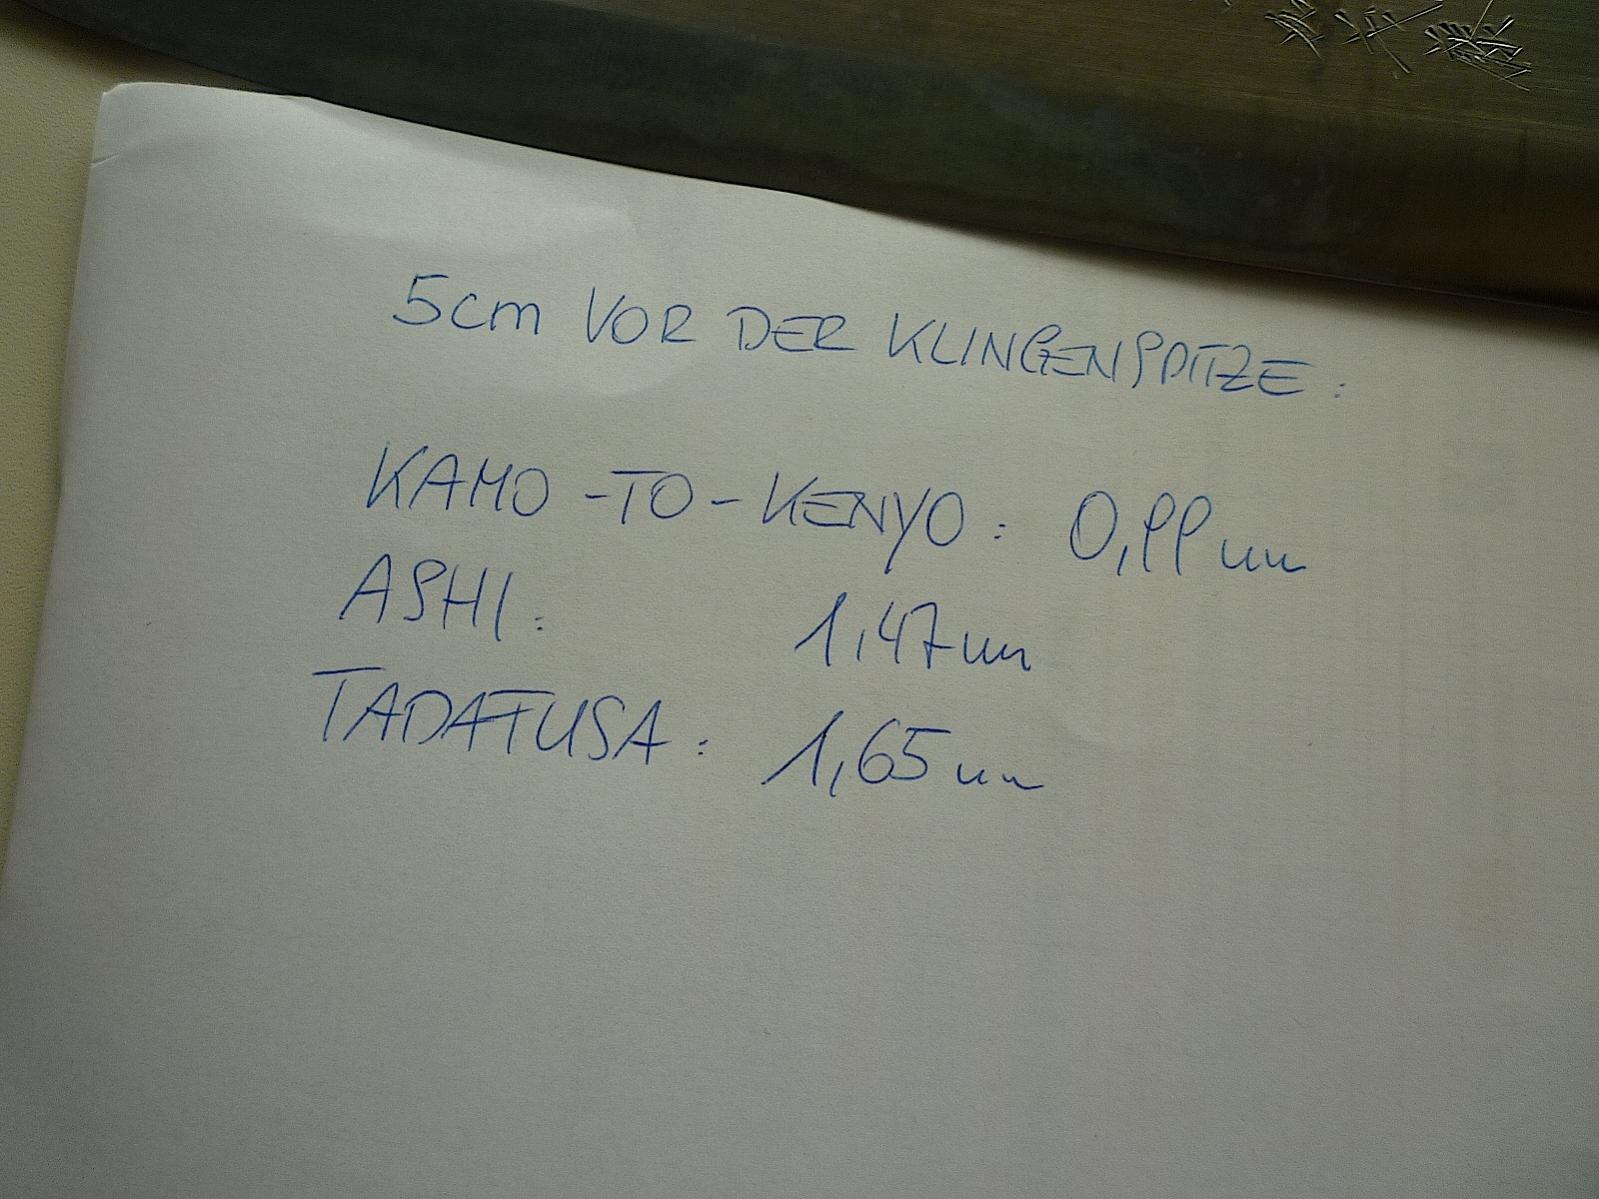 5cm VOR DER KLINGENSPITZE:
KAMO-TO-KENYO: 0,99mm
ASHI: 1,47mm
TADAFUSA: 1,65mm